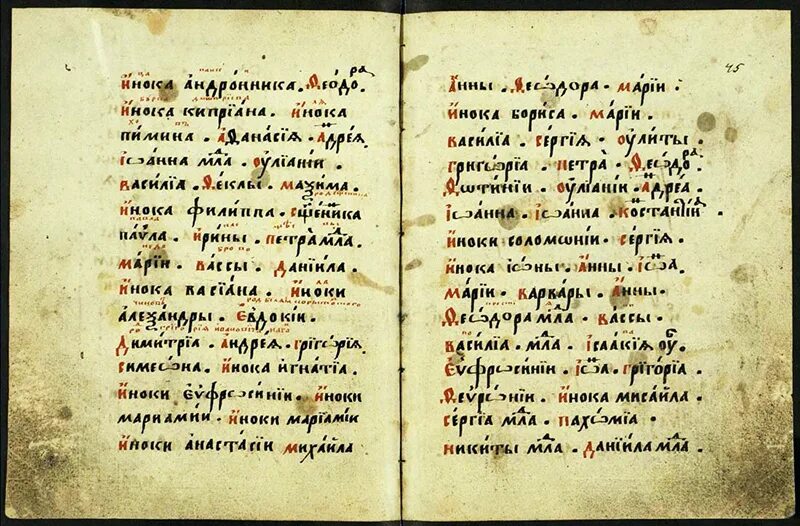 и҆нока а҆ндро́нника . Ѳео́до ра .
и҆нока кипрїана . и҆нока
пи́мина . а҆ѳана́сїѧ . а҆ндре́ѧ
і҆ѡа́нна мл҃а . ᲂу҆лїанїи .
васи́лїа . ѳе́клы . ма́ѯима .
и҆нока филиппа . сщ҃е́нника
па́ѵла . и҆ри́ны . петра̀ мл҃а .
марі́и . ва́ссы . данїи́ла .
и҆нока васїа́на . и҆ноки
алеѯа́ндры . Е҆ѵдокі́и .
Дими́трїа . а҆ндре́ѧ . григо́рїѧ
симеѡ́на . и҆нока и҆гна́тїа .
и҆ноки є҆ѵфроси́нїи . и҆ноки
мариамии . и҆ноки марїами́и
и҆ноки анаста́сїи миха́йла
45
а҆́нны . Ѳеѡ́дора . марі́и .
и҆нока бори́са . марі́и .
васи́лїа . се́ргїѧ . ᲂу҆ли́ты .
григѡ́рїа . петра̀ . Ѳеѡ́до ра .
Ѳѡти́нїи . ᲂу҆лїа́нїи . а҆ндре́а .
і҆ѡа́нна . і҆ѡа́нна . костанті́ѧ .
и҆ноки соломѡні́и . се́ргїѧ .
и҆нока і҆ѡ́ны . а҆́нны . і҆ѡ҃а .
марі́и . варва́ры . а҆́нны .
Ѳеѡ́дора мл҃а . ва́ссы .
васи́лїа . мл҃а . і҆саа́кїѧ ᲂу҆б .
Е҆ѵфроси́нїи . і҆ѡ҃а . григо́рїа
Ѳеѵрѡ́нїи . и҆нока мисаи́ла .
се́ргїѧ мл҃а . пахѡ́мїа .
ники́ты мл҃а . данїи́ла мл҃а .